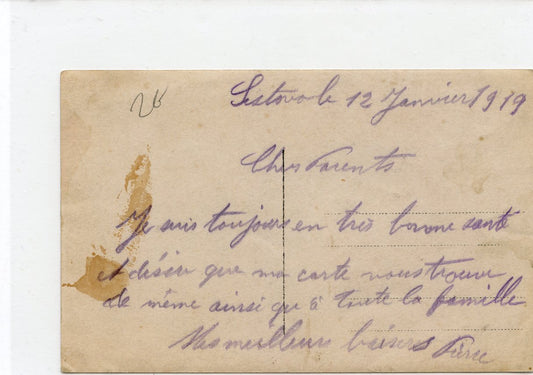 26
Sistovo le 12 Janvier 1919
Chers Parents
Je suis toujours en très bonne santé
et désire que ma carte vous trouve
de même ainsi qu'à toute la famille
Mes meilleurs baisers Pierre